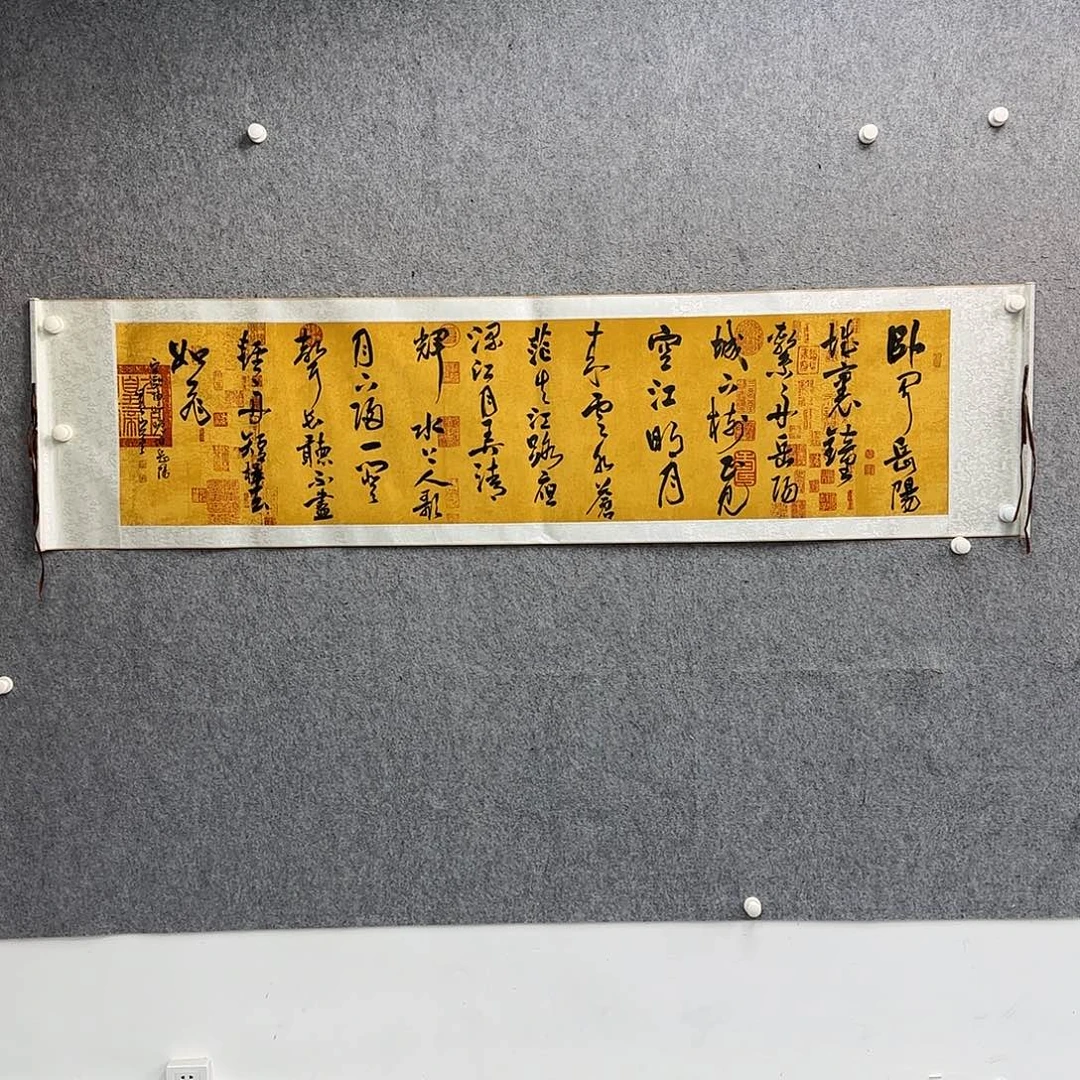 臥聞岳陽
城裏鐘
繫舟岳陽
城下樹正見
空江明月
來雲水蒼
茫失江路夜
深江月弄清
輝水上人歌
月下歸一闋
聲長聽不盡
輕舟短楫去
如飛